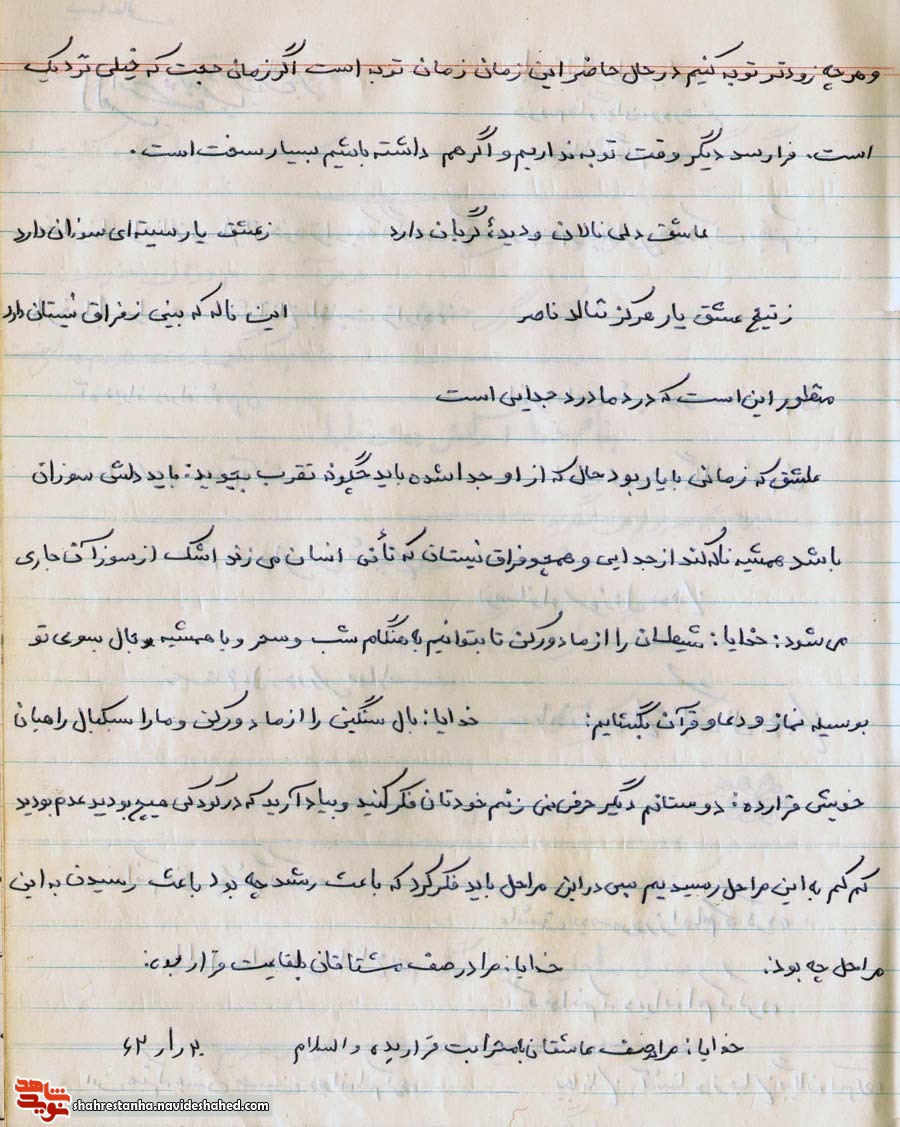 و هر چه زودتر توبه کنیم در حال حاضر این زمان زمان توبه است اگر زمان حجت که خیلی نزدیک
است. فرا رسد دیگر وقت توبه نداریم و اگر هم داشته باشیم بسیار سخت است.
عاشق دلی نالان و دیدهٔ گریان دارد زعشق یار سینه‌ای سوزان دارد
ز تیغ عشق یار هرگز ننالد ناصر این ناله که بینی ز فراق نیستان دارد
منظور این است که درد ما درد جدایی است
عاشق که زمانی با یار بود حال که از او جدا شده باید چگونه تقرب بجوید: باید دلش سوزان
باشد همیشه ناله کند از جدایی و همچو فراق نیستان که تا نی انسان می زند اشک از سوز آن جاری
می شود: خدایا: شیطان را از ما دور کن تا بتوانیم به هنگام شب و سحر و یا همیشه بال سوی تو
بوسیله نماز و دعا و قرآن بگشایم: خدایا: بال سنگین را از ما دور کن و ما را سبکبال راهیان
خویش قرار ده: دوستانم دیگر حرفی نمی زنم خودتان فکر کنید و بیاد آرید که در کودکی هیچ بودید عدم بودید
کم کم به این مراحل رسیدیم پس در این مراحل باید فکر کرد که باعث رشد چه بود باعث رسیدن به این
مراحل چه بود: خدایا: مرا در صف مشتاقان بلقایت قرار بده:
خدایا: مرا در صف عاشقان قرار بده والسلام
نوید شاهد
shahrestanha.navideshahed.com